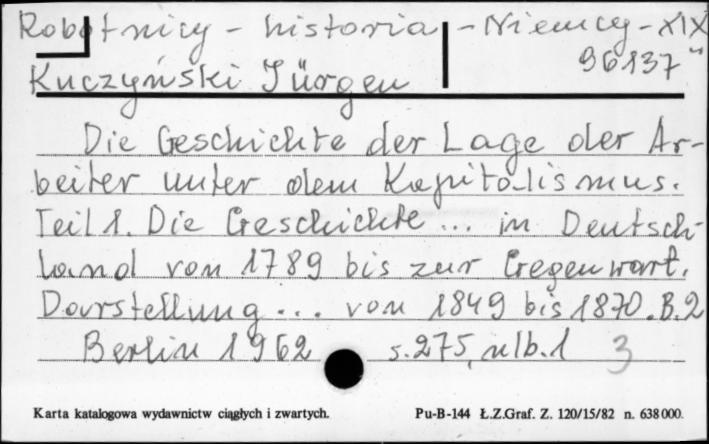 Robotnicy - historia - Niemcy - XIX
96137"
Kuczyński Jürgen
Die Geschichte der Lage der Ar-
beiter unter dem Kapitalismus.
Teil 1. Die Geschichte ... in Deutsch-
land von 1789 bis zur Gegenwart.
Darstellung ... von 1849 bis 1870. B.2
Berlin 1962 s.275, nlb.1 3
Karta katalogowa wydawnictw ciągłych i zwartych. Pu-B-144 Ł.Z.Graf. Z. 120/15/82 n. 638000.